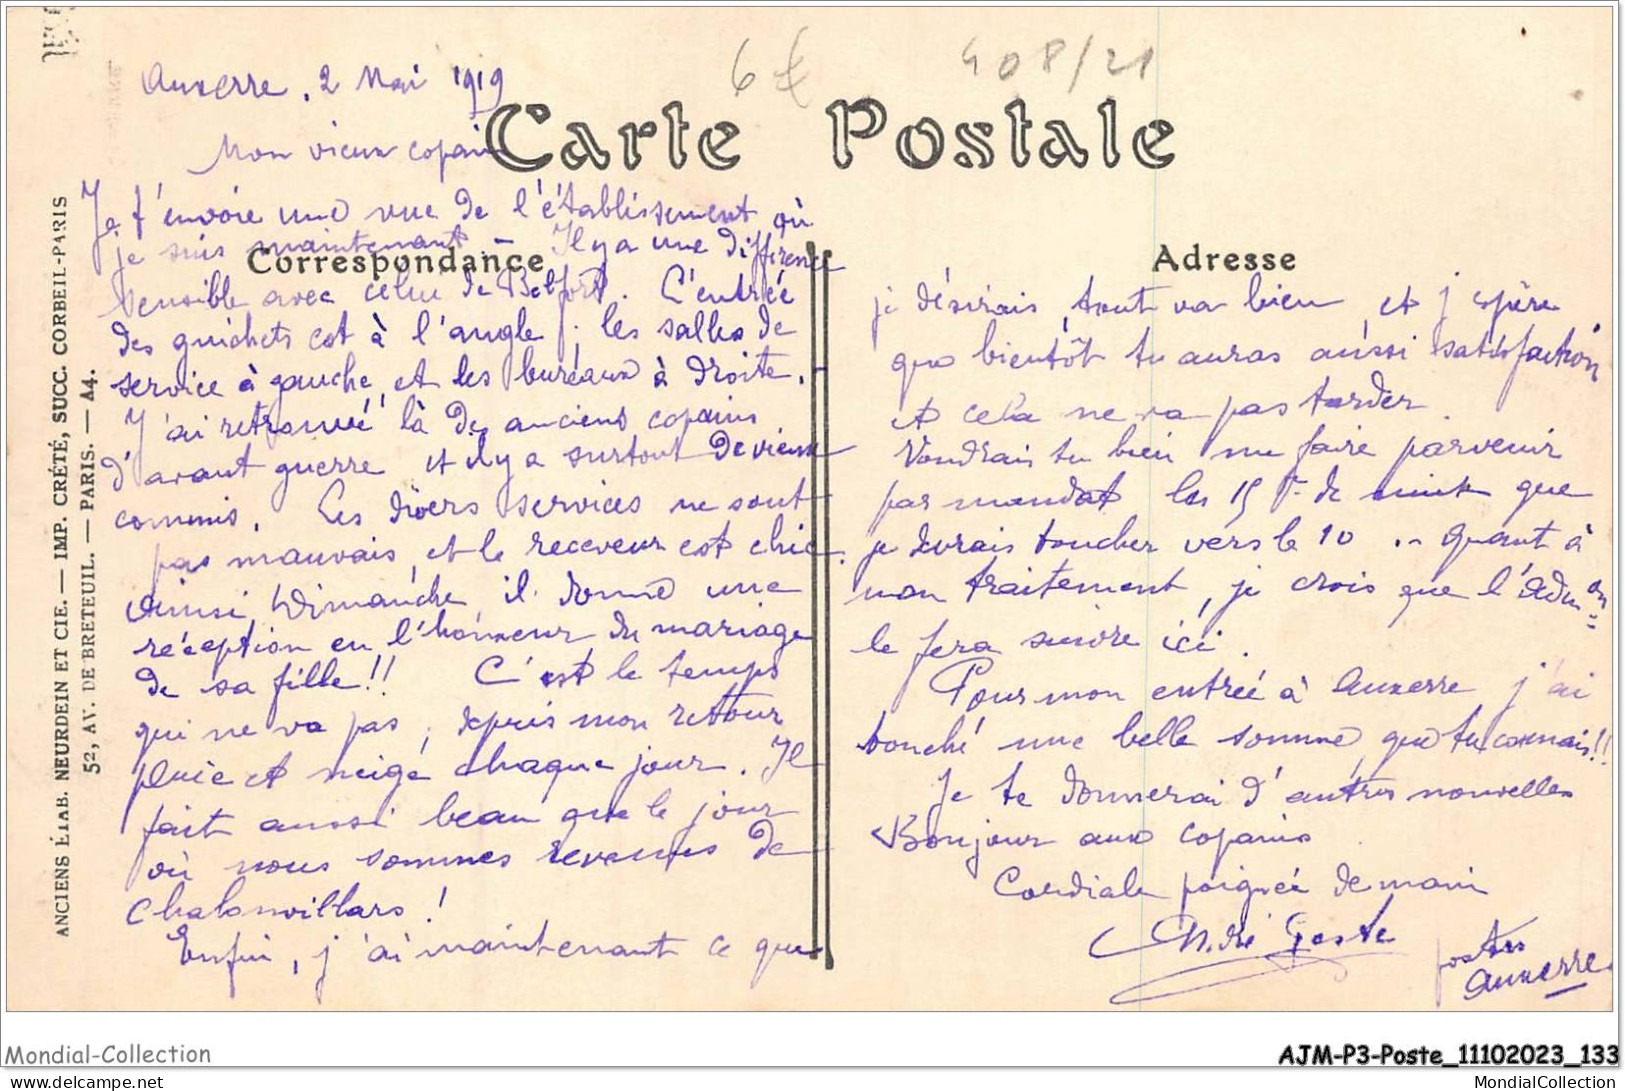 6€
408/21
Auxerre, 2 Mai 1919
Carte Postale
Mon vieux copain
Je t'envoie une vue de l'établissement où
je suis maintenant – Il y a une différence
Correspondance
sensible avec celui de Belfort. L'entrée
des guichets est à l'angle ; les salles de
service à gauche, et les bureaux à droite.
J'ai retrouvé là de anciens copains
d'avant guerre et il y a surtout de vieux
commis. Les divers services ne sont
pas mauvais, et le receveur est chic.
Ainsi, Dimanche, il donne une
réception en l'honneur du mariage
de sa fille!! C'est le temps
qui ne va pas ; depuis mon retour
pluie et neige chaque jour. Il
fait aussi beau que le jour
où nous sommes revenus de
Chalonvillars !
Enfin, j'ai maintenant ce que
Adresse
je désirais, tout va bien et j'espère
que bientôt tu auras aussi satisfaction
et cela ne va pas tarder.
Voudrais tu bien me faire parvenir
par mandat les 15 F de nuit que
je devrais toucher vers le 10 .. Quant à
mon traitement, je crois que l'Admon
le fera suivre ici.
Pour mon entrée à Auxerre j'ai
touché une belle somme, que tu connais!!
Je te donnerai d'autres nouvelles
Bonjour aux copains
Cordiale poignée de main
André
postes
Auxerre
ANCIENS ÉTAB. NEURDEIN ET CIE. — IMP. CRÉTÉ, SUCC. CORBEIL-PARIS
52, AV. DE BRETEUIL. — PARIS. — A4.
Mondial-Collection
AJM-P3-Poste_11102023_133
delcampe.net
MondialCollection